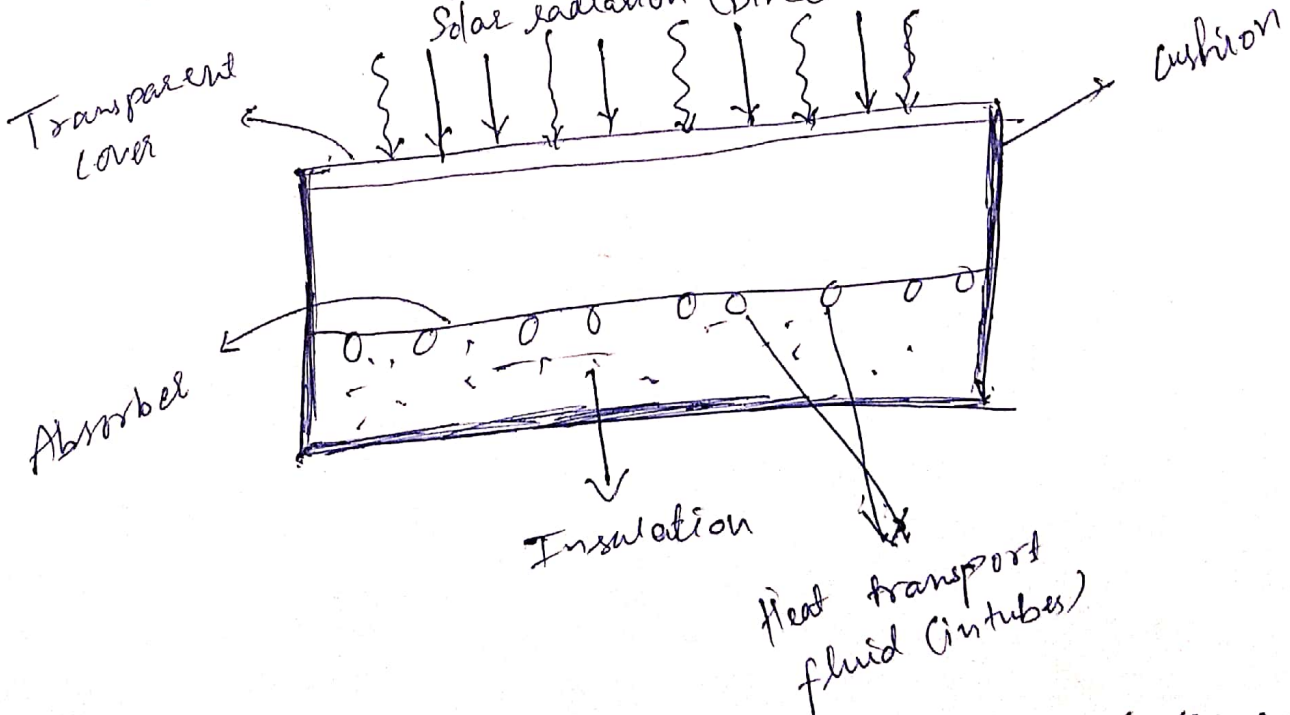 Solar radiation
Transparent
cover
Cushion
Absorber
Insulation
Heat transport
fluid (in tubes)